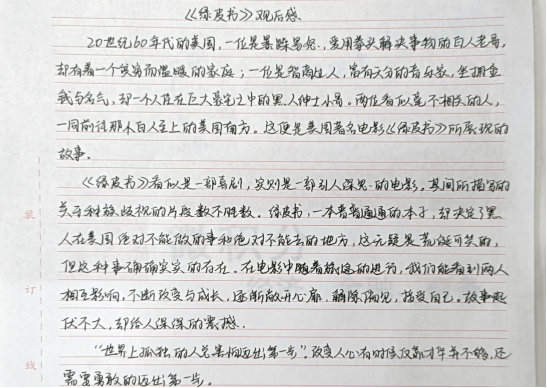 《绿皮书》观后感
20世纪60年代的美国,一位是暴躁易怒,爱用拳头解决事物的白人老哥,
却有着一个贫穷而温暖的家庭;一位是智商过人,富有天分的音乐家,坐拥金
钱与名气,却一个人住在巨大豪宅之中的黑人绅士小哥。两位看似毫不相关的人,
一同前往那个白人至上的美国南方。这便是美国著名电影《绿皮书》所展现的
故事。
《绿皮书》看似是一部喜剧,实则是一部引人深思的电影。其间所描写的
关于种族歧视的片段数不胜数。绿皮书,一本普普通通的本子,却决定了黑
人在美国绝对不能做的事和绝对不能去的地方,这无疑是荒诞可笑的,
但这种事确确实实的存在。在电影中随着旅途的进行,我们能看到两人
相互影响,不断改变与成长,逐渐敞开心扉,解除偏见,接受自己。故事起
伏不大,却给人深深的震撼。
“世界上孤独的人总害怕迈出第一步”。改变人心有时候仅靠才华并不够,还
需要勇敢的迈出第一步。
装
订
线